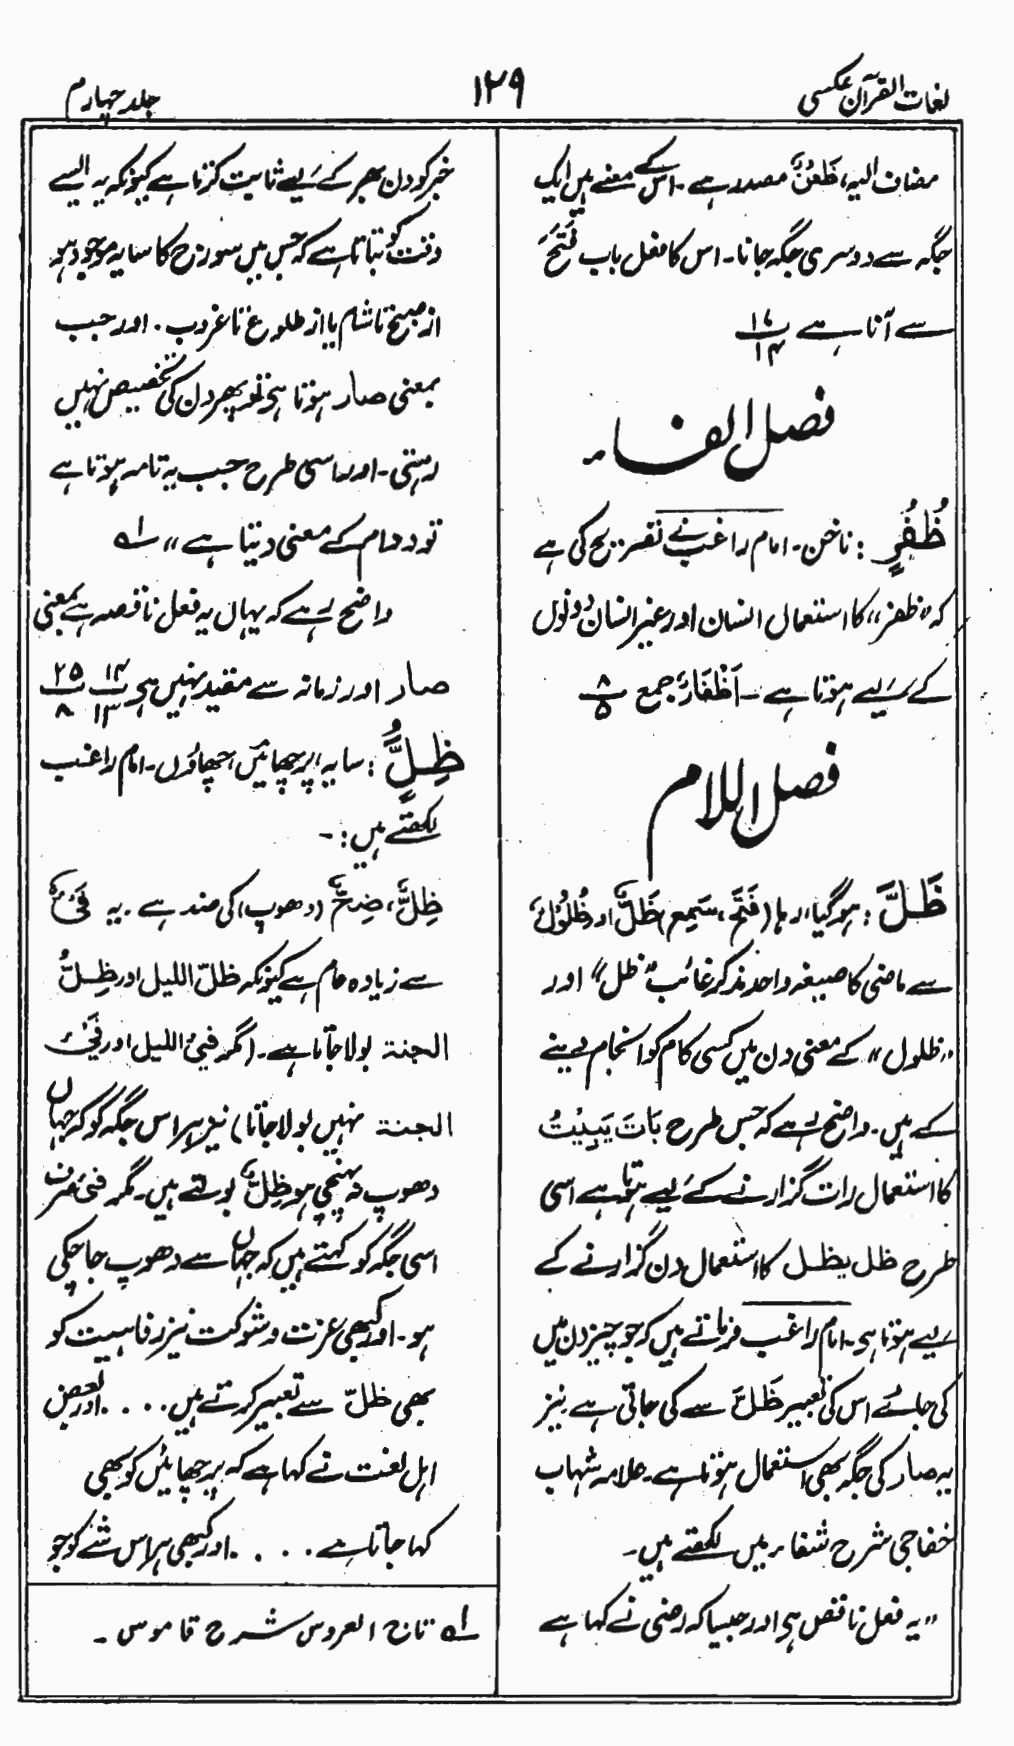 لغات القرآن عکسی
۱۲۹
جلد چہارم
مضاف الیہ، ظَعْنٌ مصدر ہے۔ اس کے معنے ہیں ایک
جگہ سے دوسری جگہ جانا۔ اس کا فعل باب فَتَحَ
سے آتا ہے ۱۷/۱۴
فصل الفاء
ظُفُرٍ : ناخن۔ امام راغب نے تصریح کی ہے
کہ "ظفر" کا استعمال انسان اور غیر انسان دونوں
کے لیے ہوتا ہے۔ اَظْفَارٌ جمع ۸/۵
فصل اللام
ظَلَّ : ہوگیا، رہا (فَتَحَ، سَمِعَ) ظَلٌّ اور ظُلُوْلٌ
سے ماضی کا صیغہ واحد مذکر غائب "ظل" اور
"ظلول" کے معنی دن میں کسی کام کو انجام دینے
کے ہیں۔ واضح رہے کہ جس طرح بَاتَ یَبِیْتُ
کا استعمال رات گزارنے کے لیے ہوتا ہے اسی
طرح ظل یظل کا استعمال دن گزارنے کے
لیے ہوتا ہی۔ امام راغب فرماتے ہیں کہ جو چیز دن میں
کی جائے اس کی تعبیر ظَلَّ سے کی جاتی ہے نیز
یہ صار کی جگہ بھی استعمال ہوتا ہے۔ علامہ شہاب
خفاجی شرح شفاء میں لکھتے ہیں۔
"یہ فعل ناقص ہی اور جیسا کہ رضی نے کہا ہے
خبر کو دن بھر کے لیے ثابت کرتا ہے کیونکہ یہ ایسے
وقت کو بتاتا ہے کہ جس میں سورج کا سایہ موجود ہو
از صبح تا شام یا از طلوع تا غروب۔ اور جب
بمعنی صار ہوتا ہی تو پھر دن کی تخصیص نہیں
رہتی۔ اور اسی طرح جب یہ تامہ ہوتا ہے
تو دوام کے معنی دیتا ہے" ۱ھ
واضح رہے کہ یہاں یہ فعل ناقصہ ہے بمعنی
صار اور زمانہ سے مقید نہیں ہی ۱۴/۱۳ ۲۵/۸
ظِلٍّ : سایہ، پرچھائیں، چھاؤں۔ امام راغب
لکھتے ہیں:۔
ظِلٌّ، ضِحٌّ (دھوپ) کی ضد ہے۔ یہ فَیْءٌ
سے زیادہ عام ہے کیونکہ ظلّ اللیل اور ظِلُّ
الجنۃ بولا جاتا ہے۔ (مگر فیءُ اللیل اور فَیْءُ
الجنۃ نہیں بولا جاتا) نیز ہر اس جگہ کو کہ جہاں
دھوپ نہ پہنچی ہو ظِلٌّ بولتے ہیں۔ مگر فئ صرف
اسی جگہ کو کہتے ہیں کہ جہاں سے دھوپ جا چکی
ہو۔ اور کبھی عزت و شوکت نیز رفاہیت کو
بھی ظلّ سے تعبیر کرتے ہیں۔۔۔۔ اور بعض
اہل لغت نے کہا ہے کہ پرچھائیں کو بھی
کہا جاتا ہے۔۔۔۔ اور کبھی ہر اس شئے کو جو
۱ھ تاج العروس شرح قاموس۔